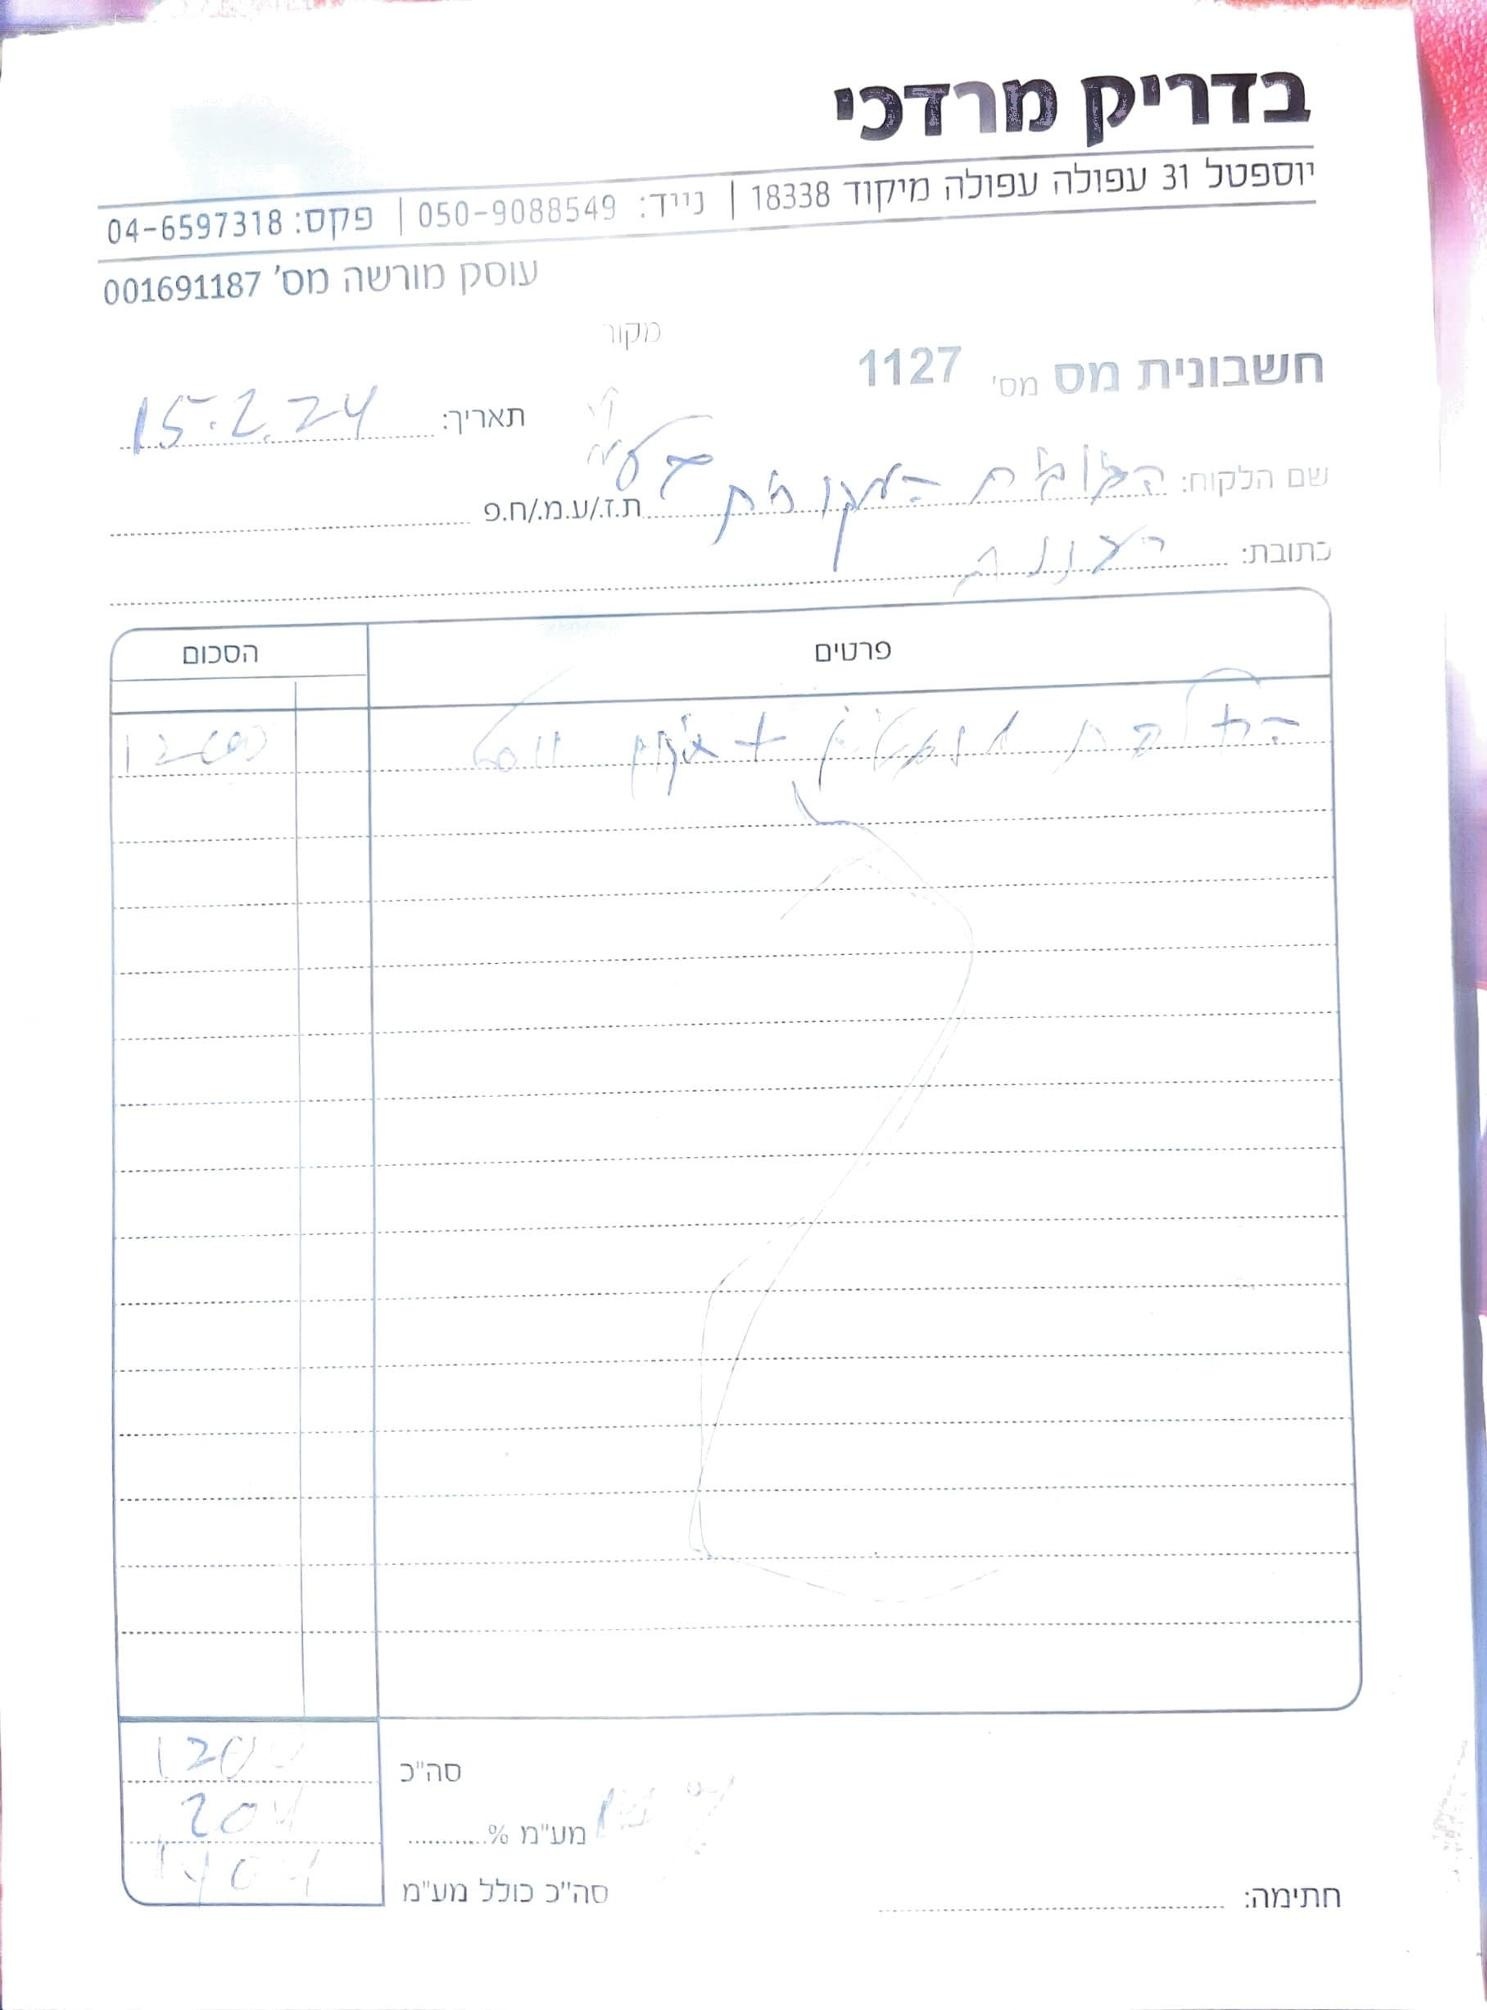 בדריק מרדכי
יוספטל 31 עפולה עפולה מיקוד 18338 | נייד: 050-9088549 | פקס: 04-6597318
עוסק מורשה מס' 001691187
מקור
חשבונית מס מס' 1127
תאריך: 15.2.24
שם הלקוח: בע"מ
ת.ז./ע.מ./ח.פ
כתובת: רעננה
פרטים הסכום
החלפת + 1200
סה"כ 1200
מע"מ % 204
סה"כ כולל מע"מ 1404
חתימה: